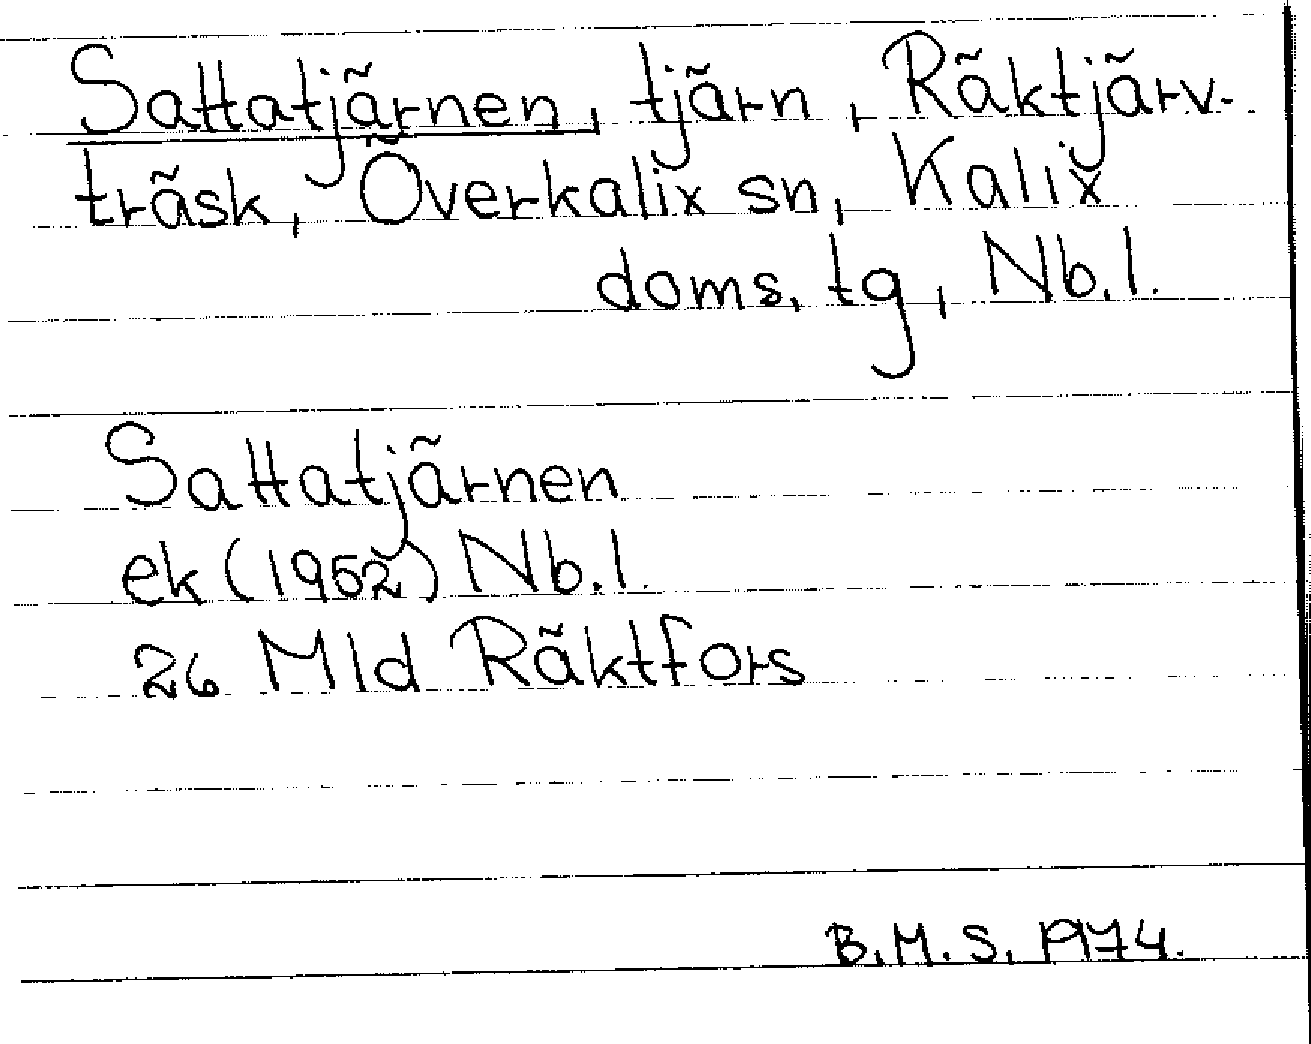 Sattatjärnen, tjärn, Räktjärv-
träsk, Överkalix sn, Kalix
doms. tg, Nb.l.
Sattatjärnen
ek (1952) Nb.l.
26 Mld Räktfors
B.M.S. 1974.